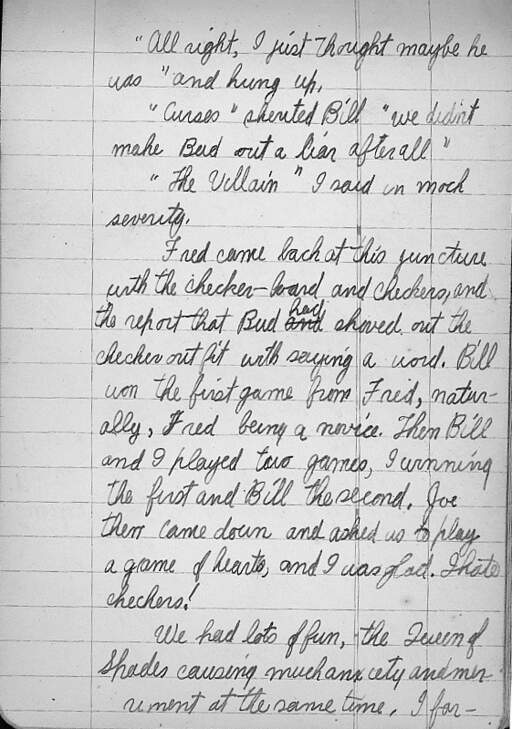 "All right, I just thought maybe he
was" and hung up.
"Curses" shouted Bill "we didn't
make Bud out a liar after all"
"The Villain" I said in mock
severity.
Fred came back at this juncture
with the checker-board and checkers, and
the report that Bud and had shoved out the
checker outfit with saying a word. Bill
won the first game from Fred, natur-
ally, Fred being a novice. Then Bill
and I played two games, I winning
the first and Bill the second. Joe
then came down and asked us to play
a game of hearts, and I was glad. I hate
checkers!
We had lots of fun, the Queen of
Spades causing much anxiety and mer-
riment at the same time. I for-